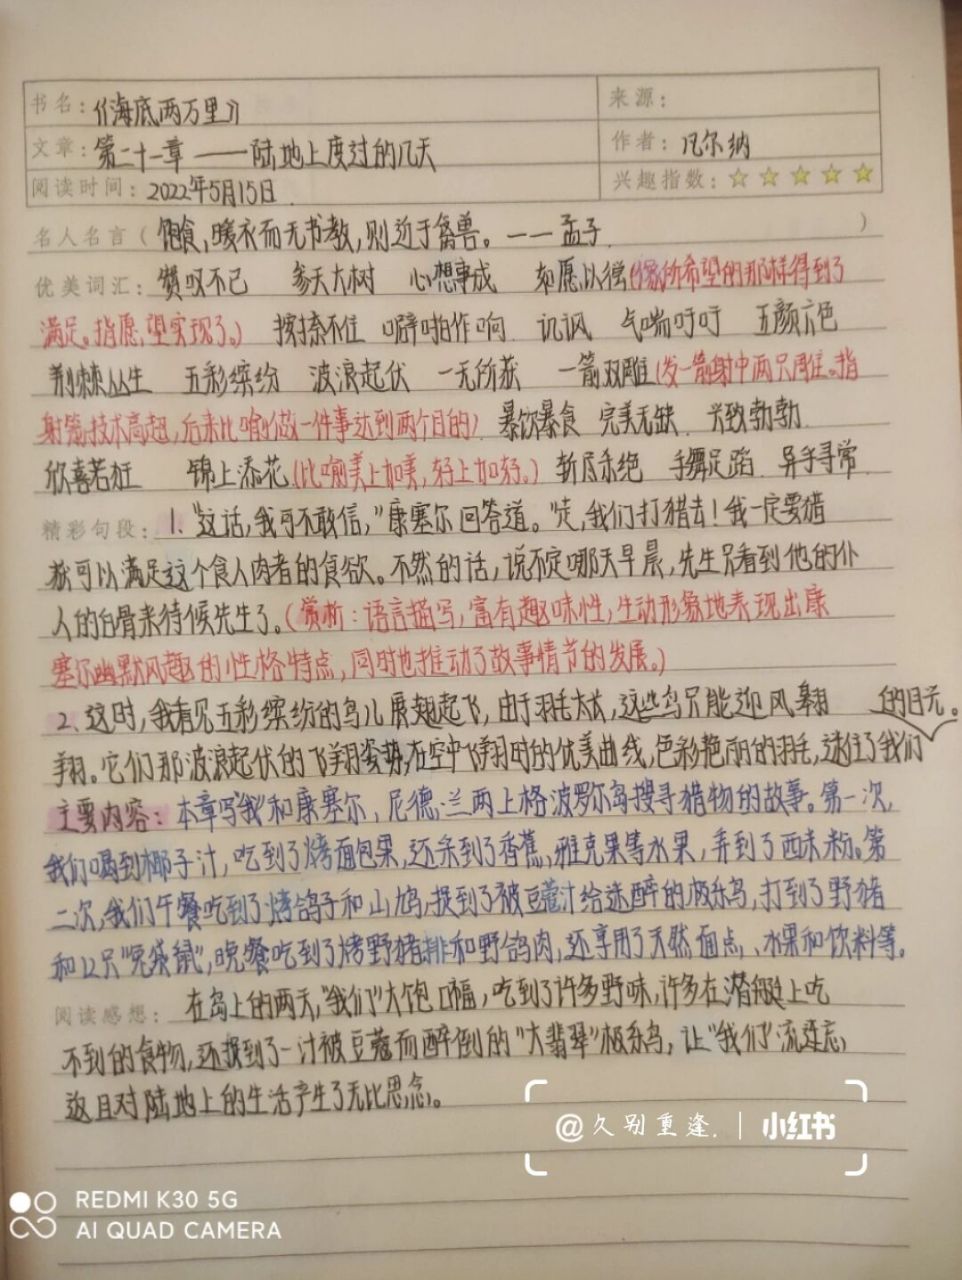 书名：《海底两万里》 来源：
文章：第二十一章——陆地上度过的几天 作者：凡尔纳
阅读时间：2022年5月15日. 兴趣指数：☆☆☆☆☆
名人名言（饱食,暖衣而无书教,则近于禽兽。——孟子. ）
优美词汇：赞叹不已 参天大树 心想事成 如愿以偿(像所希望的那样得到了
满足。指愿望实现了。) 按捺不住 噼啪作响 讥讽 气喘吁吁 五颜六色
荆棘丛生 五彩缤纷 波浪起伏 一无所获 一箭双雕(发一箭射中两只雕。指
射箭技术高超,后来比喻做一件事达到两个目的) 暴饮暴食 完美无缺 兴致勃勃
欣喜若狂 锦上添花(比喻美上加美,好上加好。) 斩尽杀绝 手舞足蹈 异乎寻常
精彩句段：1.“这话,我可不敢信,”康塞尔回答道。“走,我们打猎去!我一定要猎
获可以满足这个食人肉者的食欲。不然的话,说不定哪天早晨,先生只看到他的仆
人的白骨来待候先生了。(赏析：语言描写,富有趣味性,生动形象地表现出康
塞尔幽默风趣的性格特点,同时也推动了故事情节的发展。)
2.这时,我看见五彩缤纷的鸟儿展翅起飞,由于羽毛太长,这些鸟只能迎风翱 的目光。
翔。它们那波浪起伏的飞翔姿势,在空中飞翔时的优美曲线,色彩艳丽的羽毛,迷住了我们
主要内容：本章写“我”和康塞尔、尼德·兰两上格波罗尔岛搜寻猎物的故事。第一次,
我们喝到椰子汁,吃到了烤面包果,还采到了香蕉,雅克果等水果,弄到了西米粉。第
二次,我们午餐吃到了烤鸽子和山鸠,捉到了被豆蔻汁给迷醉的极乐鸟,打到了野猪
和12只“兔袋鼠”,晚餐吃到了烤野猪排和野鸽肉,还享用了天然面点、水果和饮料等。
阅读感想： 在岛上的两天,“我们”大饱口福,吃到了许多野味,许多在潜艇上吃
不到的食物,还捉到了一汁被豆蔻而醉倒的“大翡翠”极乐鸟,让“我们”流连忘
返且对陆地上的生活产生了无比思念。
@久别重逢. | 小红书
REDMI K30 5G
AI QUAD CAMERA